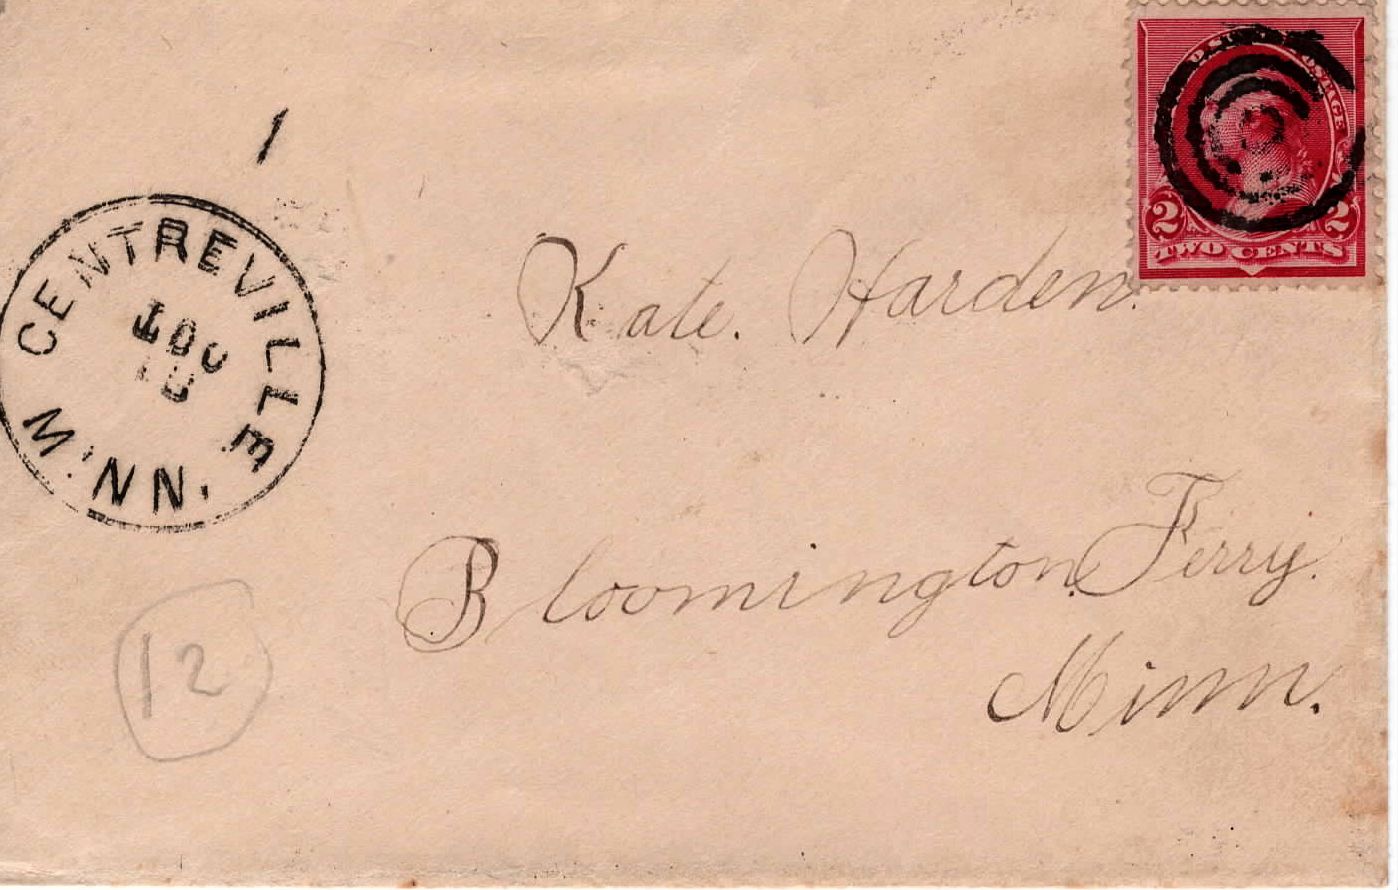 U.S. POSTAGE
2 2
TWO CENTS
CENTREVILLE
MINN.
Kate. Harden.
Bloomington. Ferry.
Minn.
12